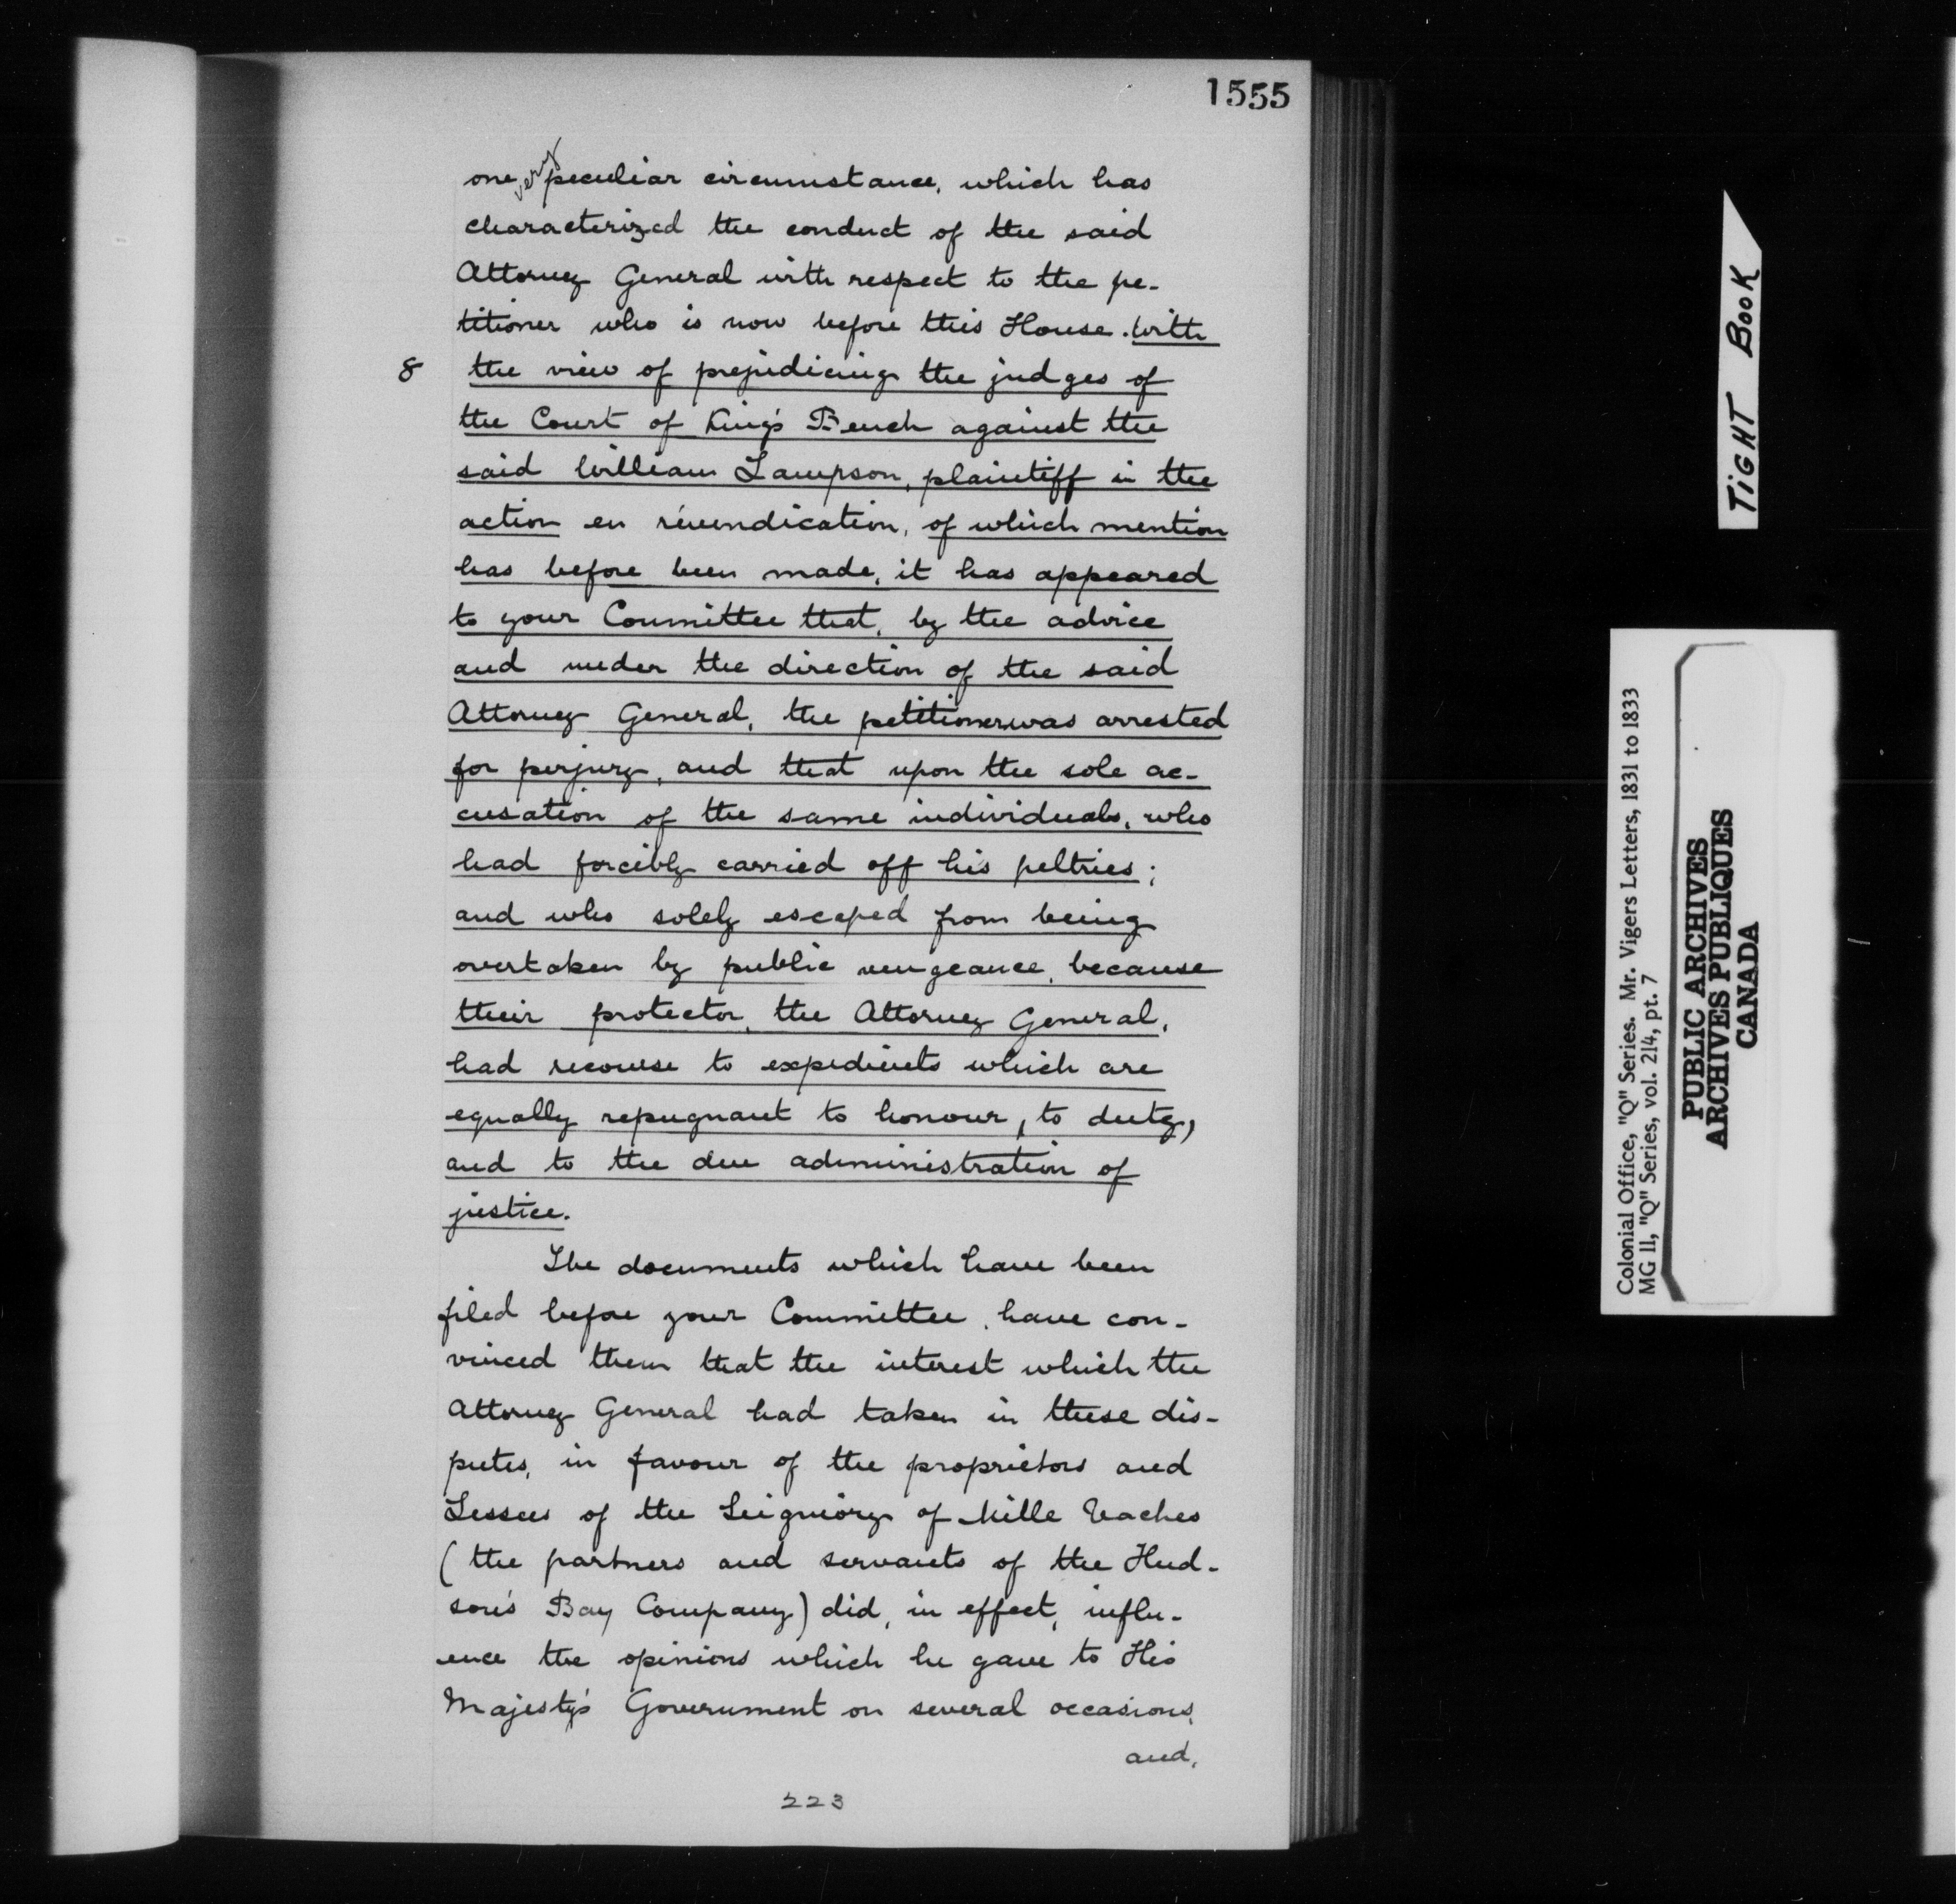 1555
one very peculiar circumstance, which has
characterized the conduct of the said
Attorney General with respect to the pe-
titioner who is now before this House. With
8 the view of prejudicing the judges of
the Court of King's Bench against the
said William Lampson, plaintiff in the
action en révendication, of which mention
has before been made, it has appeared
to your Committee that, by the advice
and under the direction of the said
Attorney General, the petitioner was arrested
for perjury, and that upon the sole ac-
cusation of the same individuals, who
had forcibly carried off his peltries;
and who solely escaped from being
overtaken by public vengeance, because
their protector, the Attorney General,
had recourse to expedients which are
equally repugnant to honour, to duty,
and to the due administration of
justice.
The documents which have been
filed before your Committee, have con-
vinced them that the interest which the
Attorney General had taken in these dis-
putes, in favour of the proprietors and
Lessees of the Seigniory of Mille Vaches
(the partners and servants of the Hud-
son's Bay Company) did, in effect, influ-
ence the opinions which he gave to His
Majesty's Government on several occasions,
and,
223
TIGHT BOOK
Colonial Office, "Q" Series. Mr. Vigers Letters, 1831 to 1833
MG 11, "Q" Series, vol. 214, pt. 7
PUBLIC ARCHIVES
ARCHIVES PUBLIQUES
CANADA